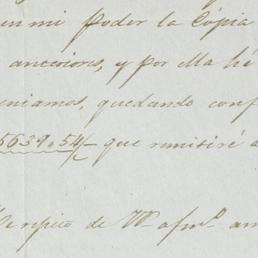 en mi poder la Cópia
anexiones, y por ella hé
eniamos, quedando conf
5639.54 que remitiré a
repito de Vm. afmo. am